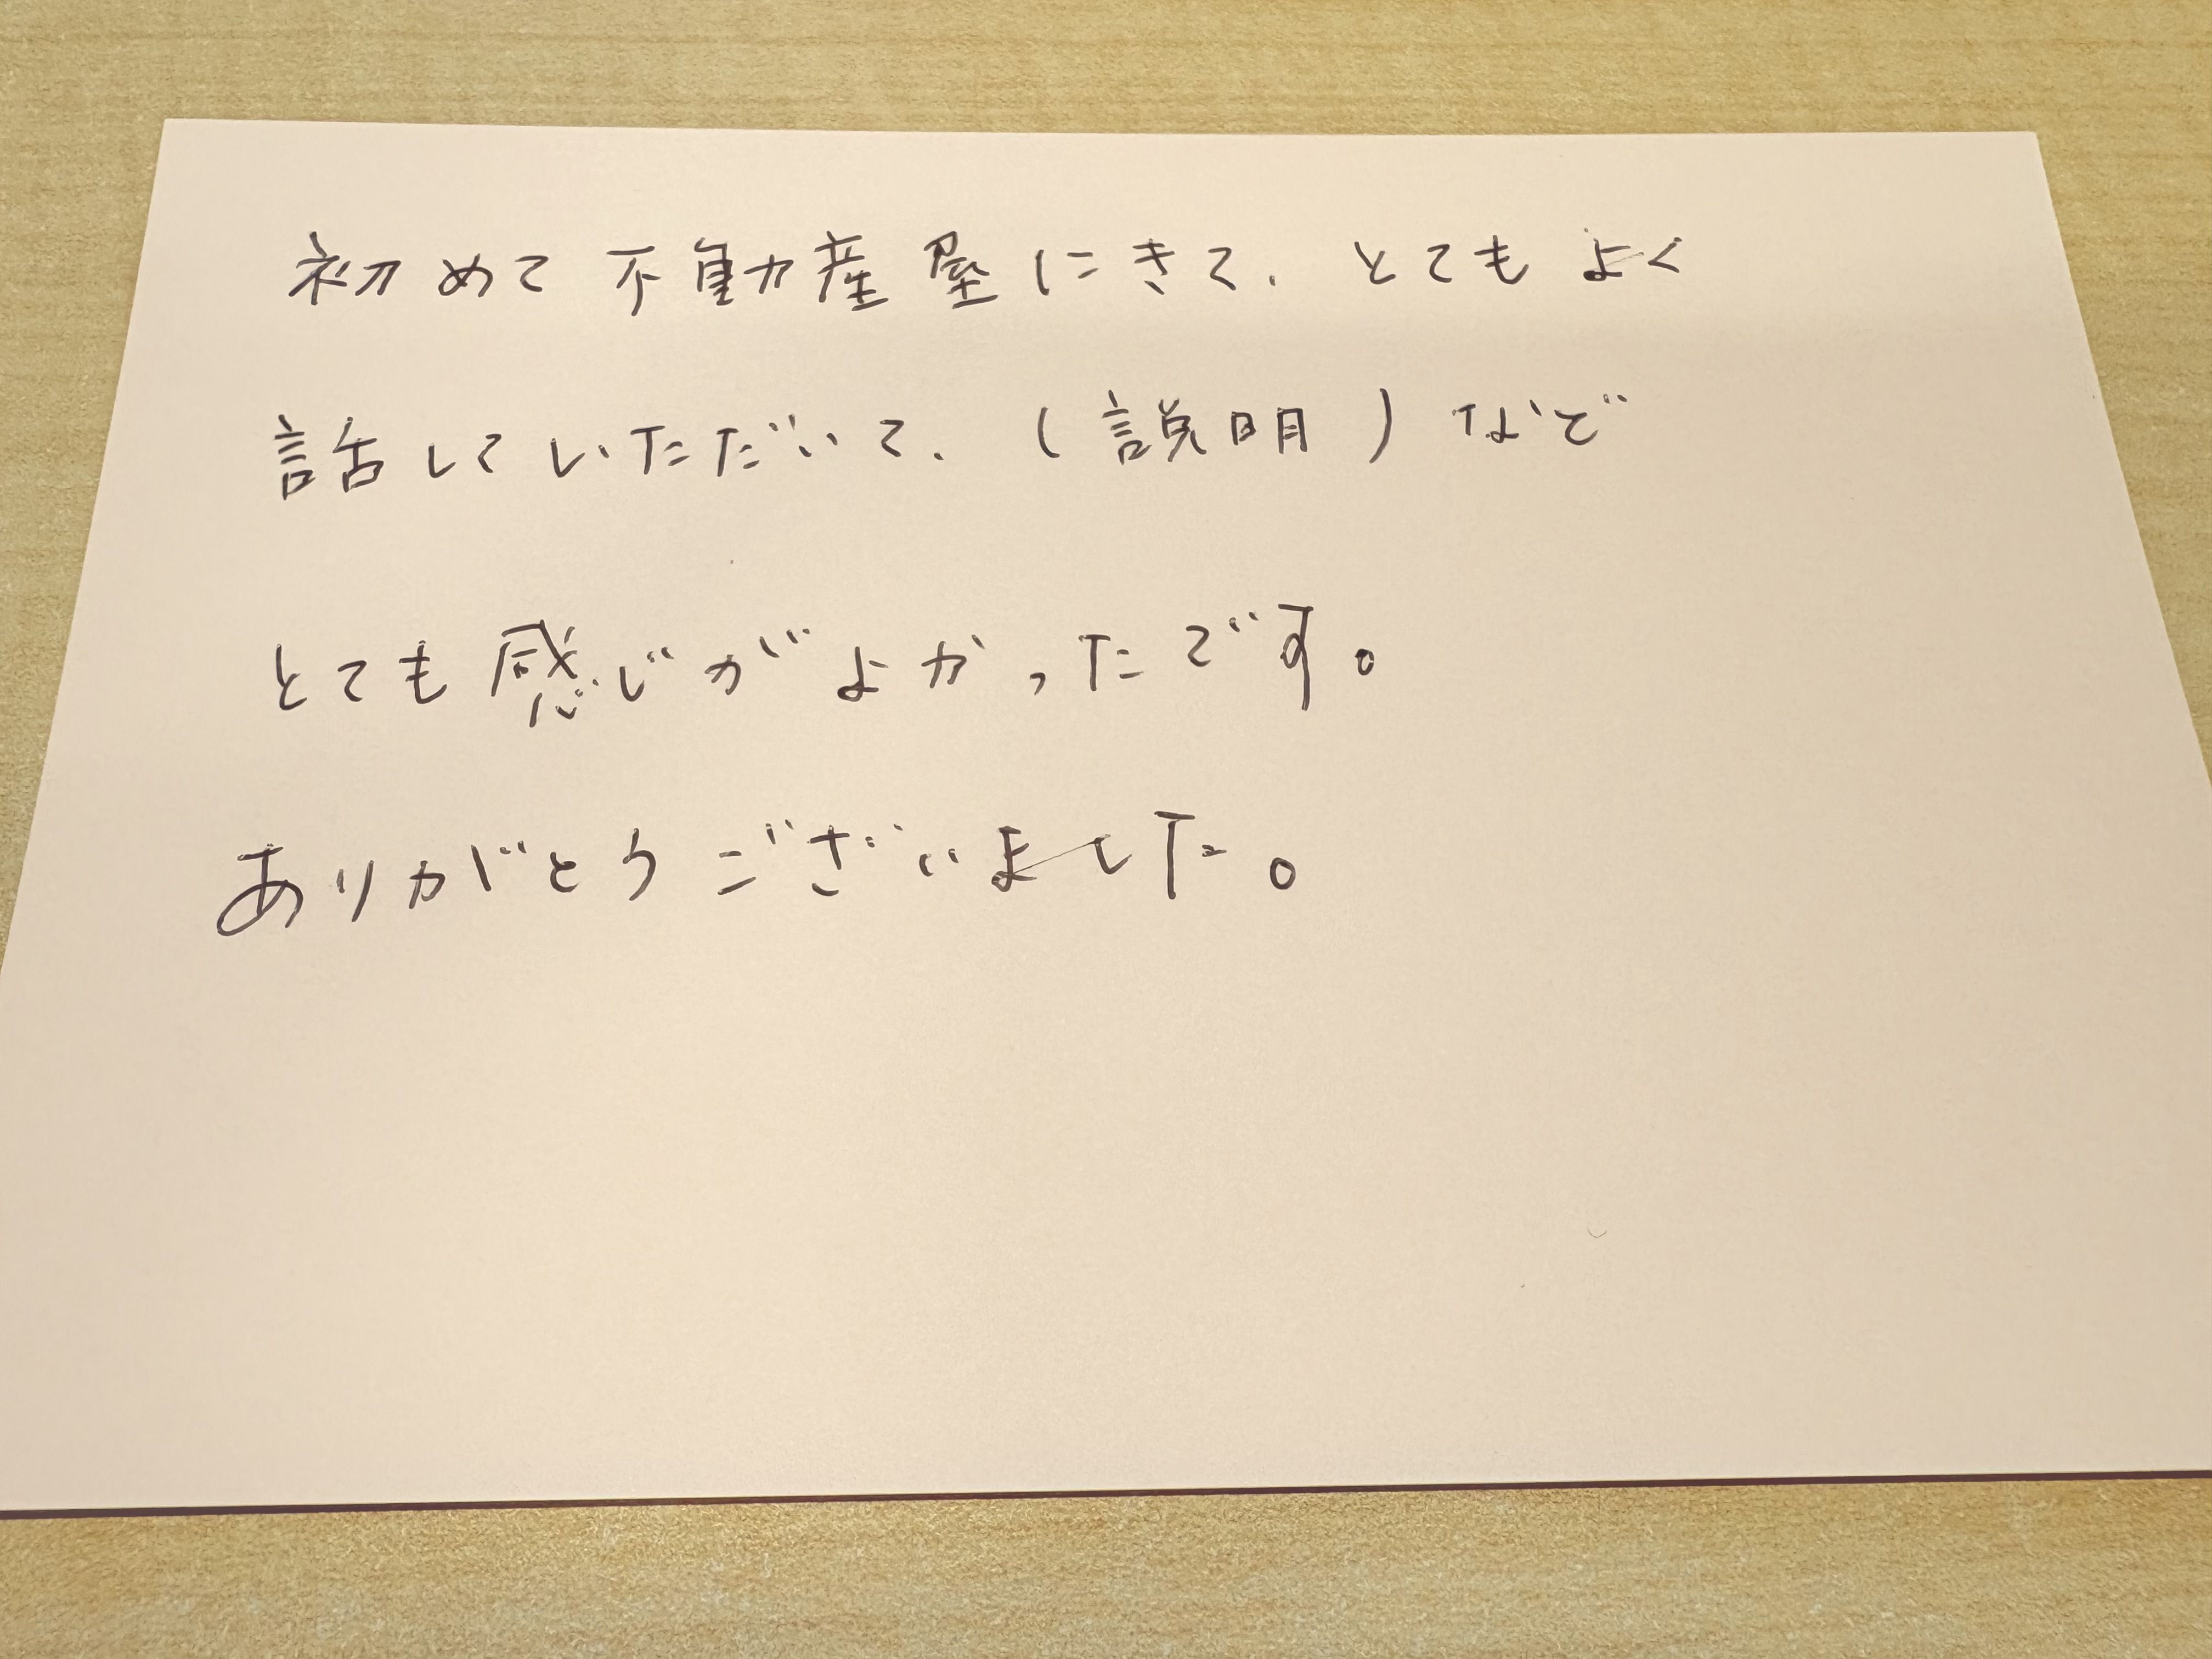 初めて不動産屋にきて、とてもよく
話していただいて、(説明)など
とても感じがよかったです。
ありがとうございました。